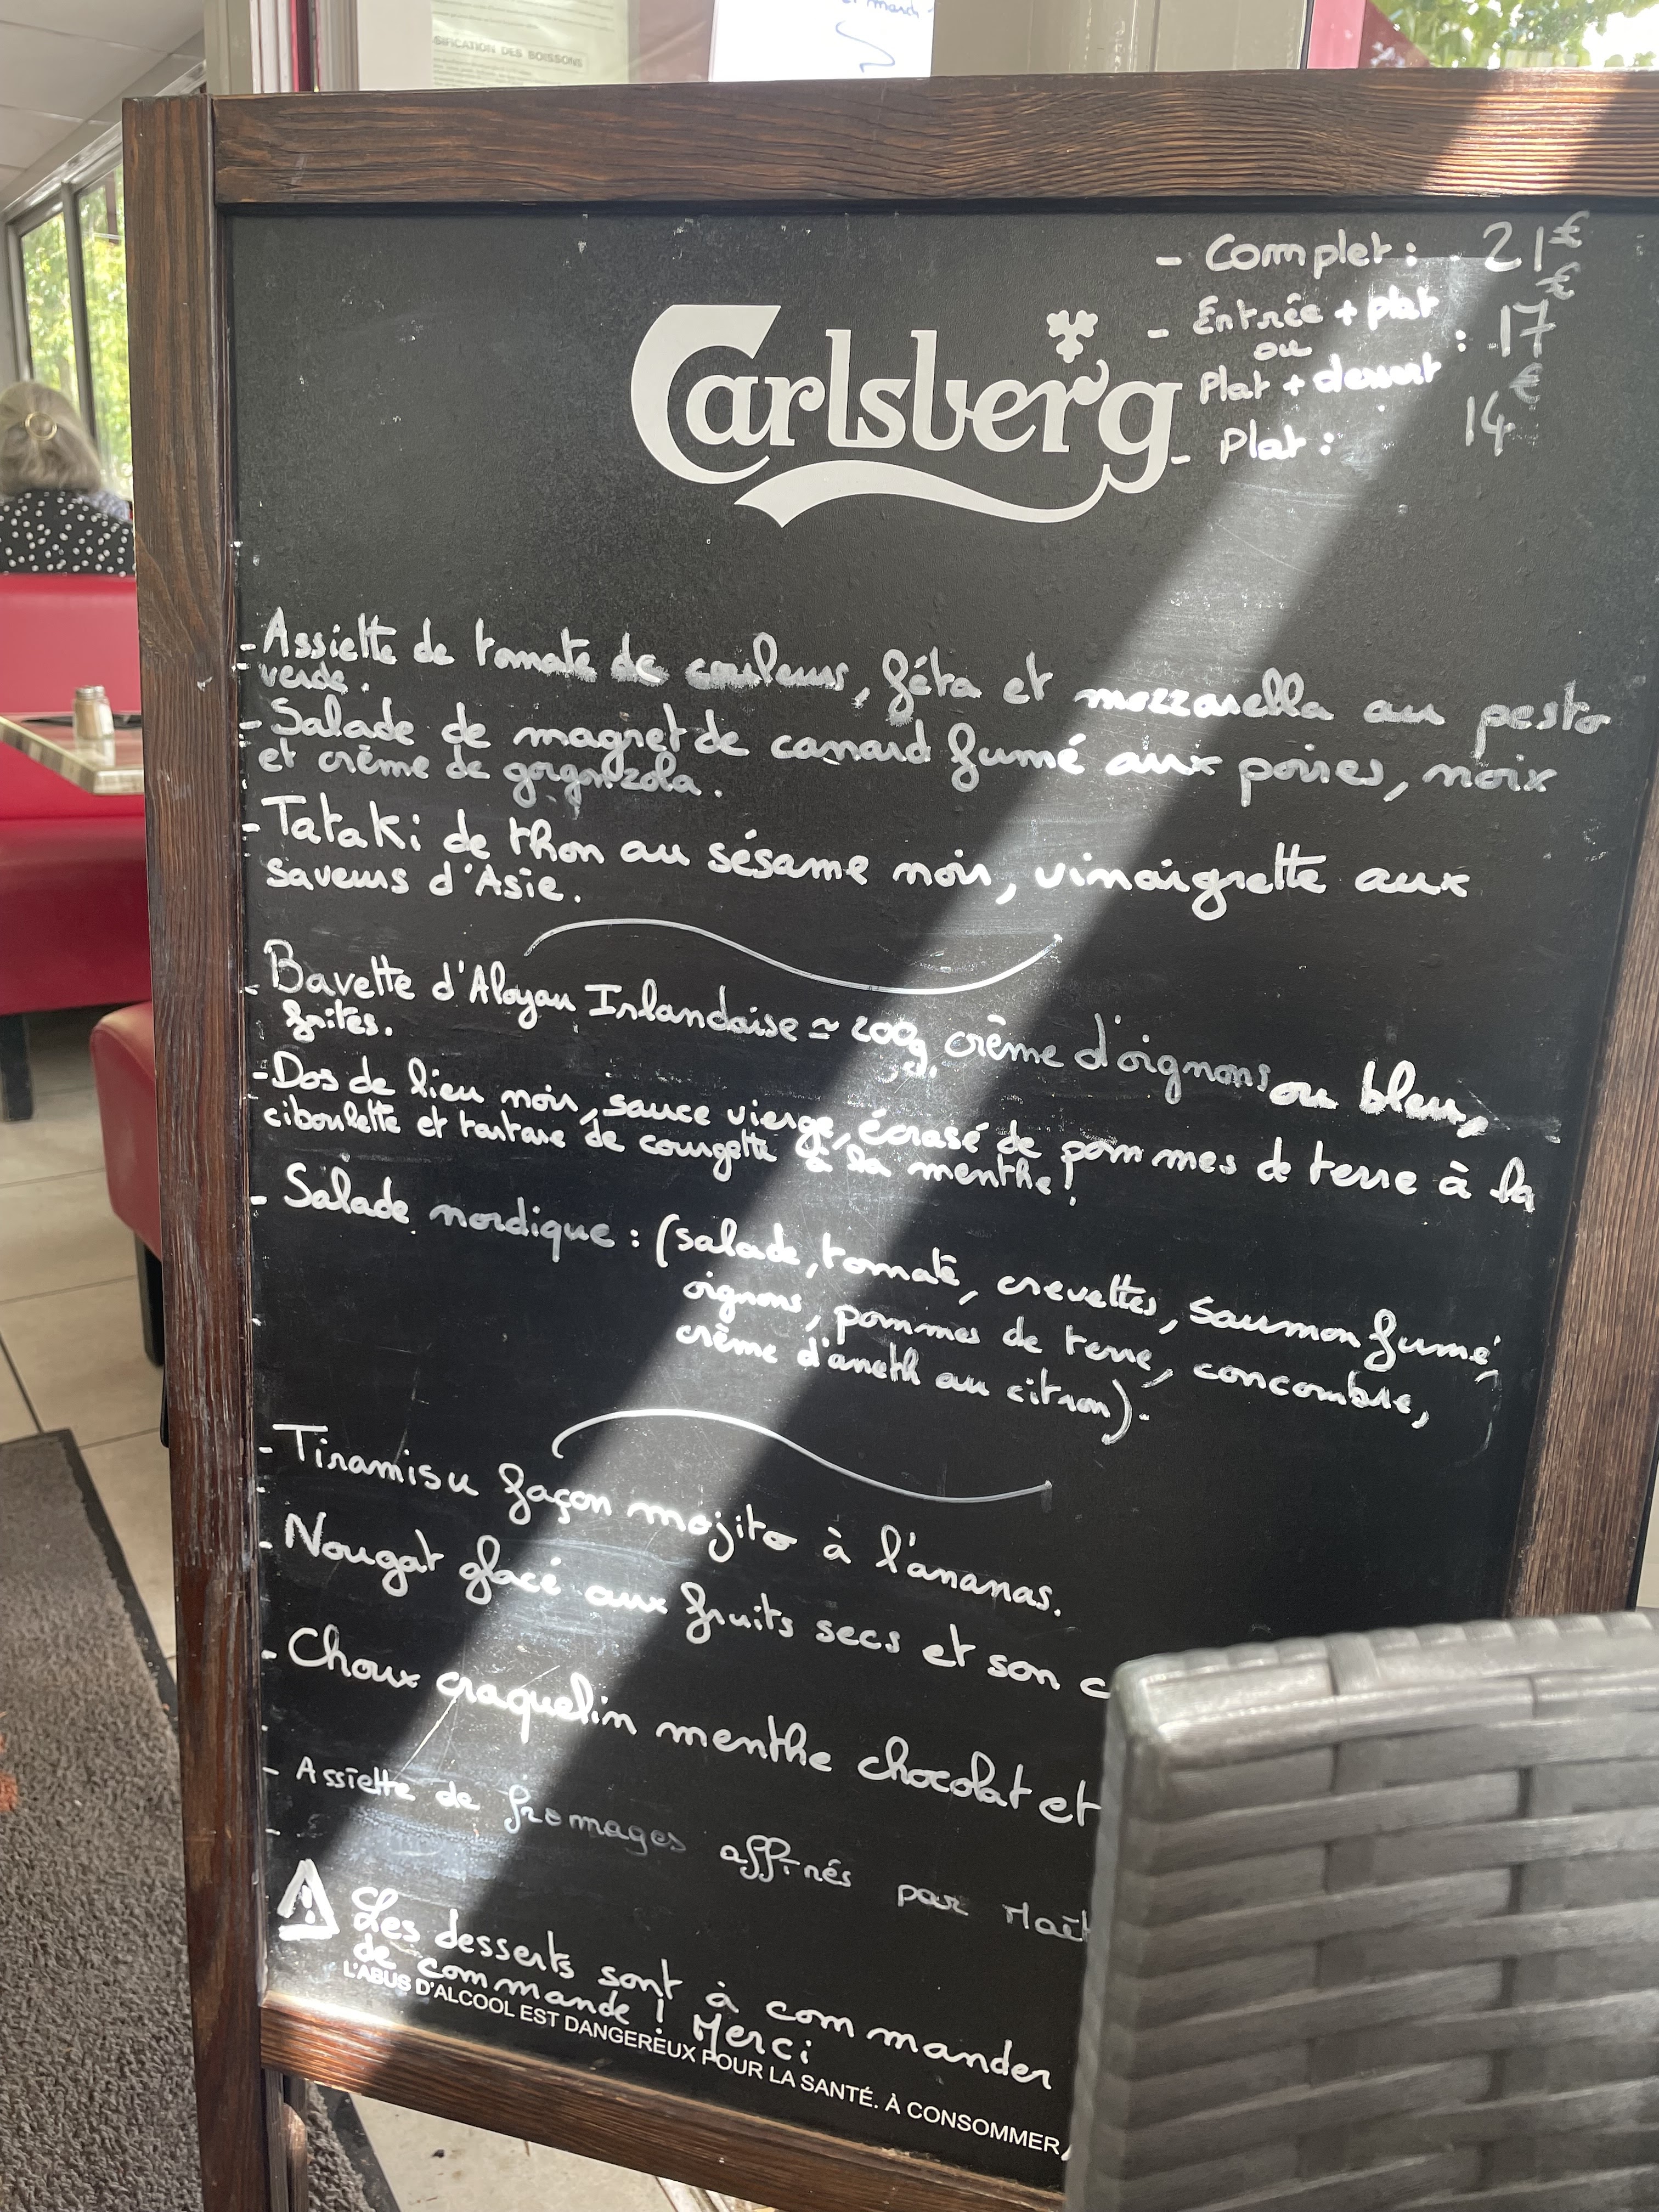 SIFICATION DES BOISSONS
- Complet : 21€
- Entrée + plat
ou : 17€
Plat + dessert
- Plat : 14€
Carlsberg
- Assiette de tomate de couleurs, féta et mozzarella au pesto
verde.
- Salade de magret de canard fumé aux poires, noix
et crème de gorgonzola.
- Tataki de thon au sésame noir, vinaigrette aux
saveurs d'Asie.
- Bavette d'Aloyau Irlandaise ≃ 200g, crème d'oignons ou bleu,
frites.
- Dos de lieu noir, sauce vierge, écrasé de pommes de terre à la
ciboulette et tartare de courgette à la menthe!
- Salade nordique : (salade, tomate, crevettes, saumon fumé,
oignons, pommes de terre, concombre,
crème d'aneth au citron).
- Tiramisu façon mojito à l'ananas.
- Nougat glacé aux fruits secs et son c
- Choux craquelin menthe chocolat et
- Assiette de fromages affinés par Maît
⚠ Les desserts sont à commander
de commande ! Merci
L'ABUS D'ALCOOL EST DANGEREUX POUR LA SANTÉ. À CONSOMMER